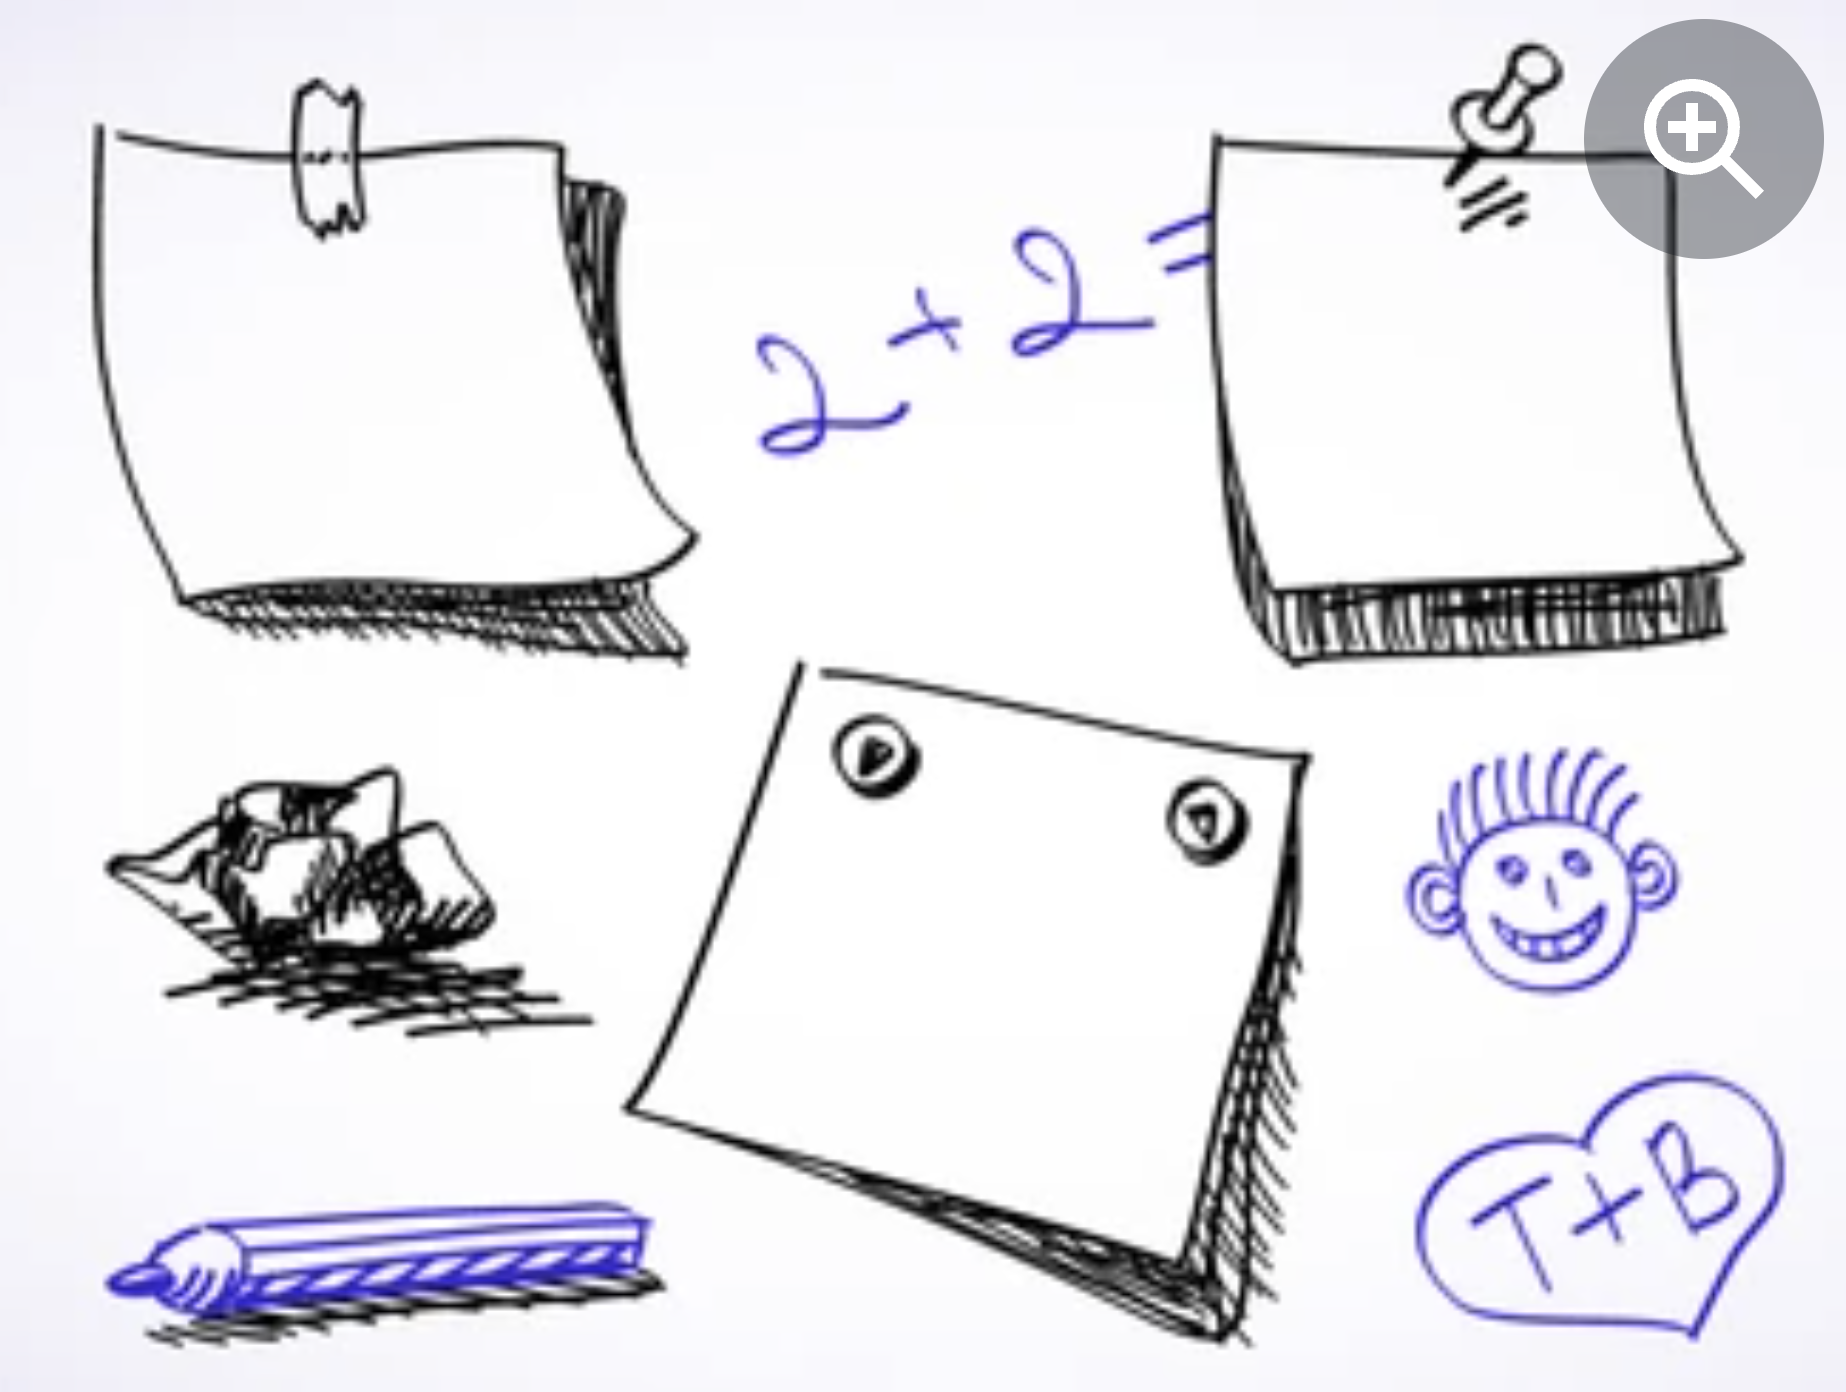 2+2=
T+B